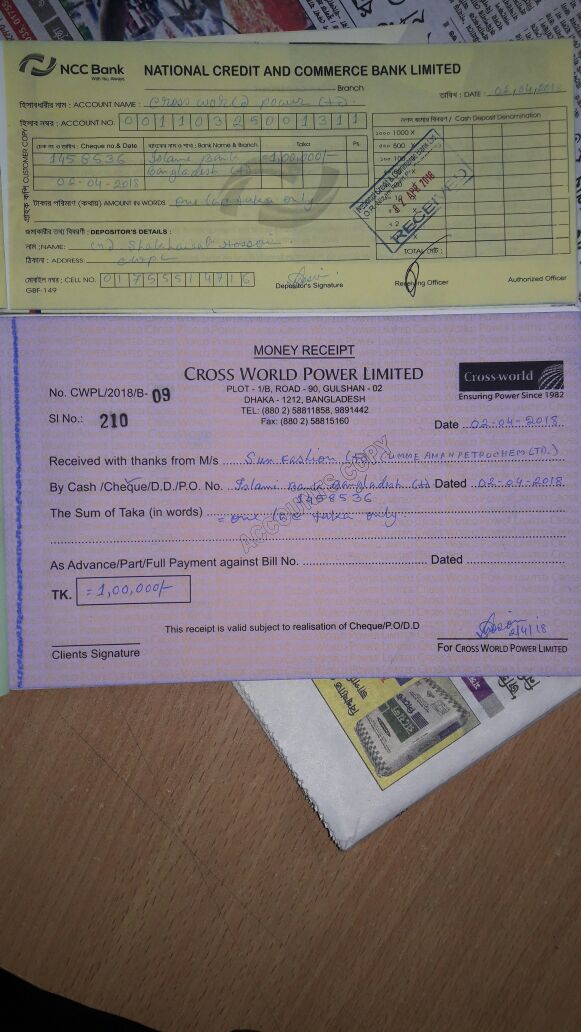 NCC Bank
With You, Always
NATIONAL CREDIT AND COMMERCE BANK LIMITED
Branch
তারিখ : DATE : 02/04/2018
হিসাবধারীর নাম : ACCOUNT NAME : Cross world power (Ltd).
হিসাব নম্বর : ACCOUNT NO. 0011032500 1311
নগদ জমার বিবরণ / Cash Deposit Denomination
চেক নং ও তারিখ : Cheque no.& Date
ব্যাংকের নাম ও শাখা : Bank Name & Branch
Taka
Ps.
1458536 Islami Bank =1,00,000/-
02-04-2018 Bangladesh (Ltd)
১০০০ 1000 X
৫০০ 500 X
১০০ 100
টাকার পরিমাণ (কথায়) AMOUNT IN WORDS one lac taka only
02 APR 2018
RECEIVED
জমাকারীর তথ্য বিবরণী : DEPOSITOR'S DETAILS :
নাম :NAME:
Hossain.
ঠিকানা : ADDRESS: CWPL
TOTAL মোট :
মোবাইল নম্বর : CELL NO. 01755514716
Depositor's Signature
Receiving Officer
Authorized Officer
GBF-149
গ্রাহক কপি CUSTOMER COPY
MONEY RECEIPT
CROSS WORLD POWER LIMITED
PLOT - 1/B, ROAD - 90, GULSHAN - 02
DHAKA - 1212, BANGLADESH
TEL: (880 2) 58811858, 9891442
Fax: (880 2) 58815160
Cross-world
Ensuring Power Since 1982
No. CWPL/2018/B- 09
Sl No.: 210
Date 02-04-2018
Received with thanks from M/s Sun Fashion (Ltd) (UMME AMAN PETROCHEM LTD.)
By Cash /Cheque/D.D./P.O. No. Islami Bank Bangladesh (Ltd) Dated 02-04-2018
1458536
The Sum of Taka (in words) = one lac taka only.
ACCOUNTS COPY
As Advance/Part/Full Payment against Bill No. Dated
TK. =1,00,000/-
This receipt is valid subject to realisation of Cheque/P.O/D.D
2/4/18
Clients Signature
For CROSS WORLD POWER LIMITED